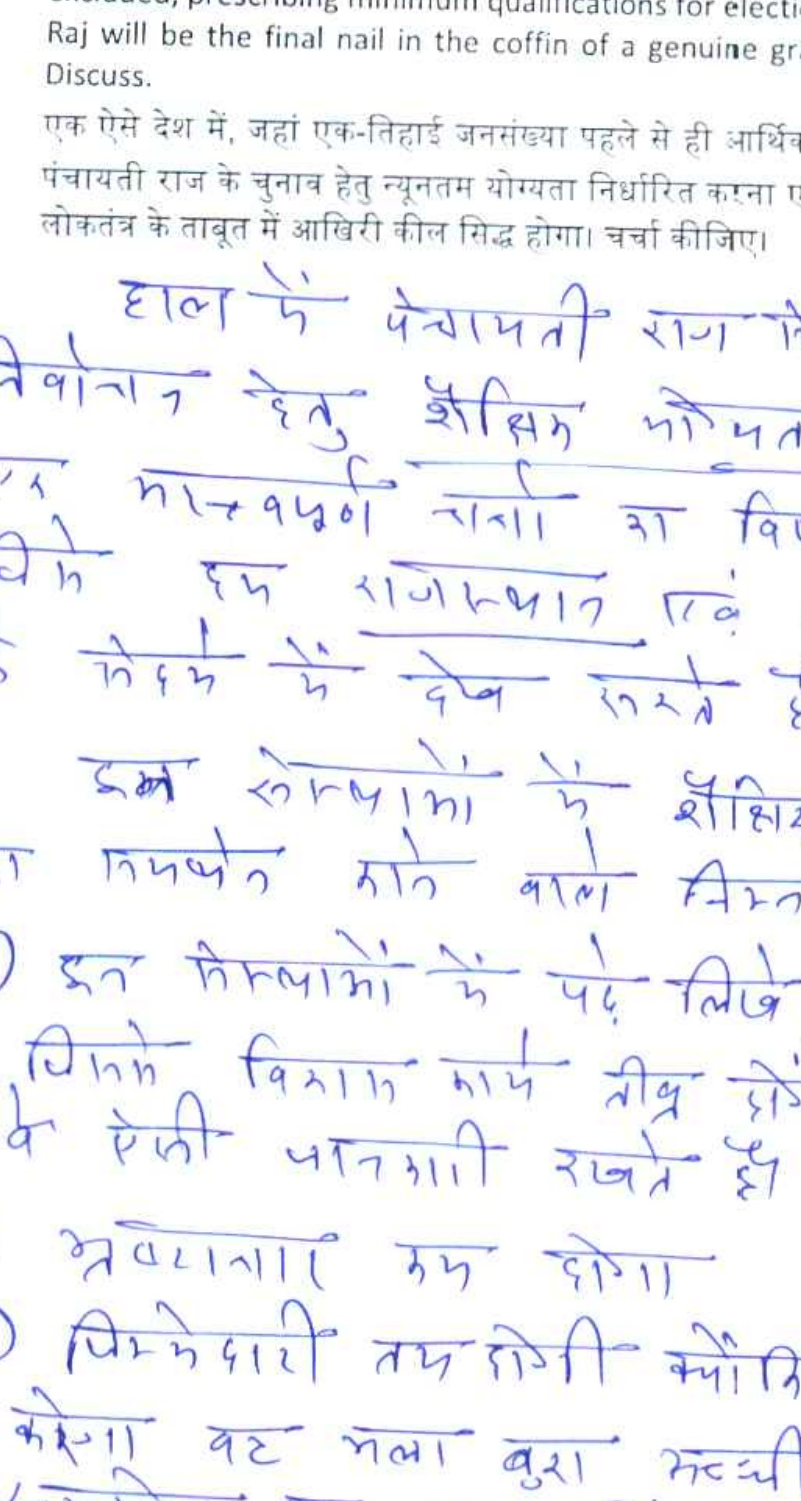 excluded, prescribing minimum qualifications for electi
Raj will be the final nail in the coffin of a genuine gr
Discuss.
एक ऐसे देश में, जहां एक-तिहाई जनसंख्या पहले से ही आर्थिक
पंचायती राज के चुनाव हेतु न्यूनतम योग्यता निर्धारित करना
लोकतंत्र के ताबूत में आखिरी कील सिद्ध होगा। चर्चा कीजिए।
हाल में पंचायती राज
हेतु शैक्षिक योग्यत
महत्वपूर्ण चर्चा का
हम राजस्थान एवं
संदर्भ में देख सकते
इन संस्थाओं में शैक्षिक
समर्थन करने वाले निम्न
इन संस्थाओं में पढ़े लिखे
जिससे विकास कार्य तीव्र होंगे
वे ऐसी जानकारी रखते हैं
भ्रष्टाचार कम होगा
जिम्मेदारी तय होगी क्योंकि
करेगा वह भला बुरा अच्छी